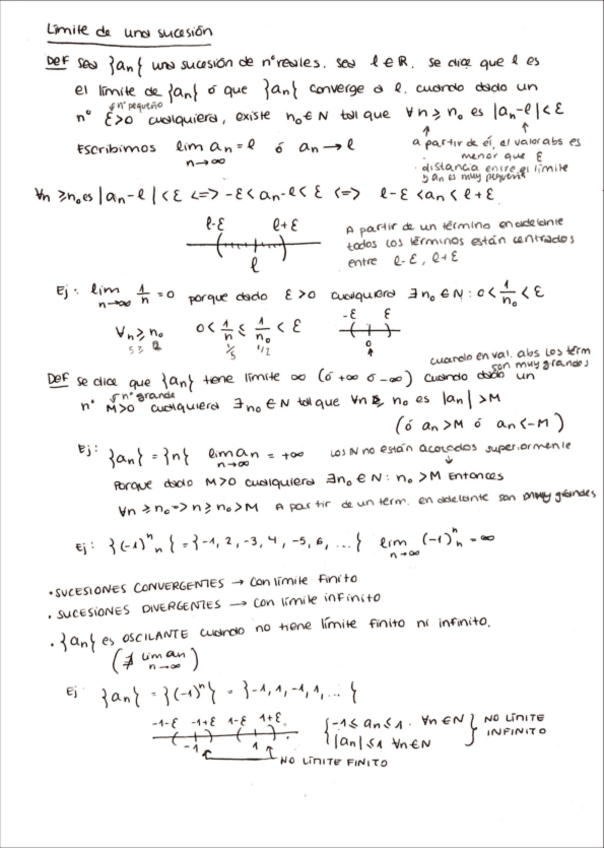 Límite de una sucesión
Def Sea {an} una sucesión de nº reales. sea l ∈ R. se dice que l es
el límite de {an} ó que {an} converge a l. cuando dado un
nº pequeño
nº ε>0 cualquiera, existe n₀ ∈ N tal que ∀n ≥ n₀ es |an - l| < ε
Escribimos lim an = l ó an → l
n→∞
a partir de él, el valor abs es
menor que ε
distancia entre el límite
y an es muy pequeña
∀n ≥ n₀ es |an - l| < ε <=> -ε < an - l < ε <=> l-ε < an < l+ε
l-ε l+ε
l
A partir de un término en adelante
todos los términos están centrados
entre l-ε, l+ε
Ej: lim 1/n = 0 porque dado ε>0 cualquiera ∃n₀ ∈ N : 0 < 1/n₀ < ε
n→∞
∀n ≥ n₀ 0 < 1/n ≤ 1/n₀ < ε
5 ≥ 2 1/5 1/2
-ε ε
0
cuando en val. abs los térm
son muy grandes
Def se dice que {an} tiene límite ∞ (ó +∞ ó -∞) cuando dado un
nº grande
nº M>0 cualquiera ∃n₀ ∈ N tal que ∀n ≥ n₀ es |an| > M
(ó an > M ó an < -M)
Ej: {an} = {n} lim an = +∞ los N no están acotados superiormente
n→∞
Porque dado M>0 cualquiera ∃n₀ ∈ N : n₀ > M Entonces
∀n ≥ n₀ => n ≥ n₀ > M A partir de un term. en adelante son muy grandes
Ej: {(-1)ⁿn} = {-1, 2, -3, 4, -5, 6, ...} lim (-1)ⁿn = ∞
n→∞
• SUCESIONES CONVERGENTES → Con límite finito
• SUCESIONES DIVERGENTES → Con límite infinito
• {an} es OSCILANTE cuando no tiene límite finito ni infinito.
(∄ lim an)
n→∞
Ej {an} = {(-1)ⁿ} = {-1, 1, -1, 1, ...}
-1-ε -1+ε 1-ε 1+ε
-1 1
{-1 ≤ an ≤ 1 . ∀n ∈ N
|an| ≤ 1 ∀n ∈ N}
NO LÍMITE
INFINITO
NO LÍMITE FINITO